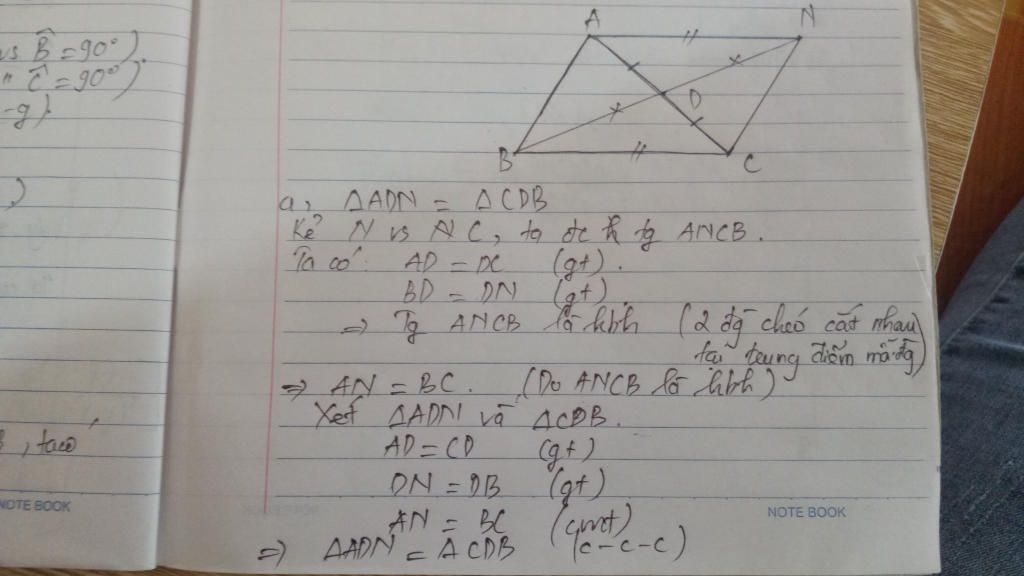 vs B̂ = 90°).
" Ĉ = 90°)
-g).
)
, ta có
NOTE BOOK
A
N
D
B
C
a, ΔADN = ΔCDB
Kẻ N vs C, ta đc tg ANCB.
Ta có: AD = DC (gt).
BD = DN (gt)
=> Tg ANCB là hbh (2 đg chéo cắt nhau
tại trung điểm mỗi đg)
=> AN = BC. (Do ANCB là hbh)
Xét ΔADN và ΔCDB.
AD = CD (gt)
DN = DB (gt)
AN = BC (cmt)
NOTE BOOK
=> ΔADN = ΔCDB (c-c-c)